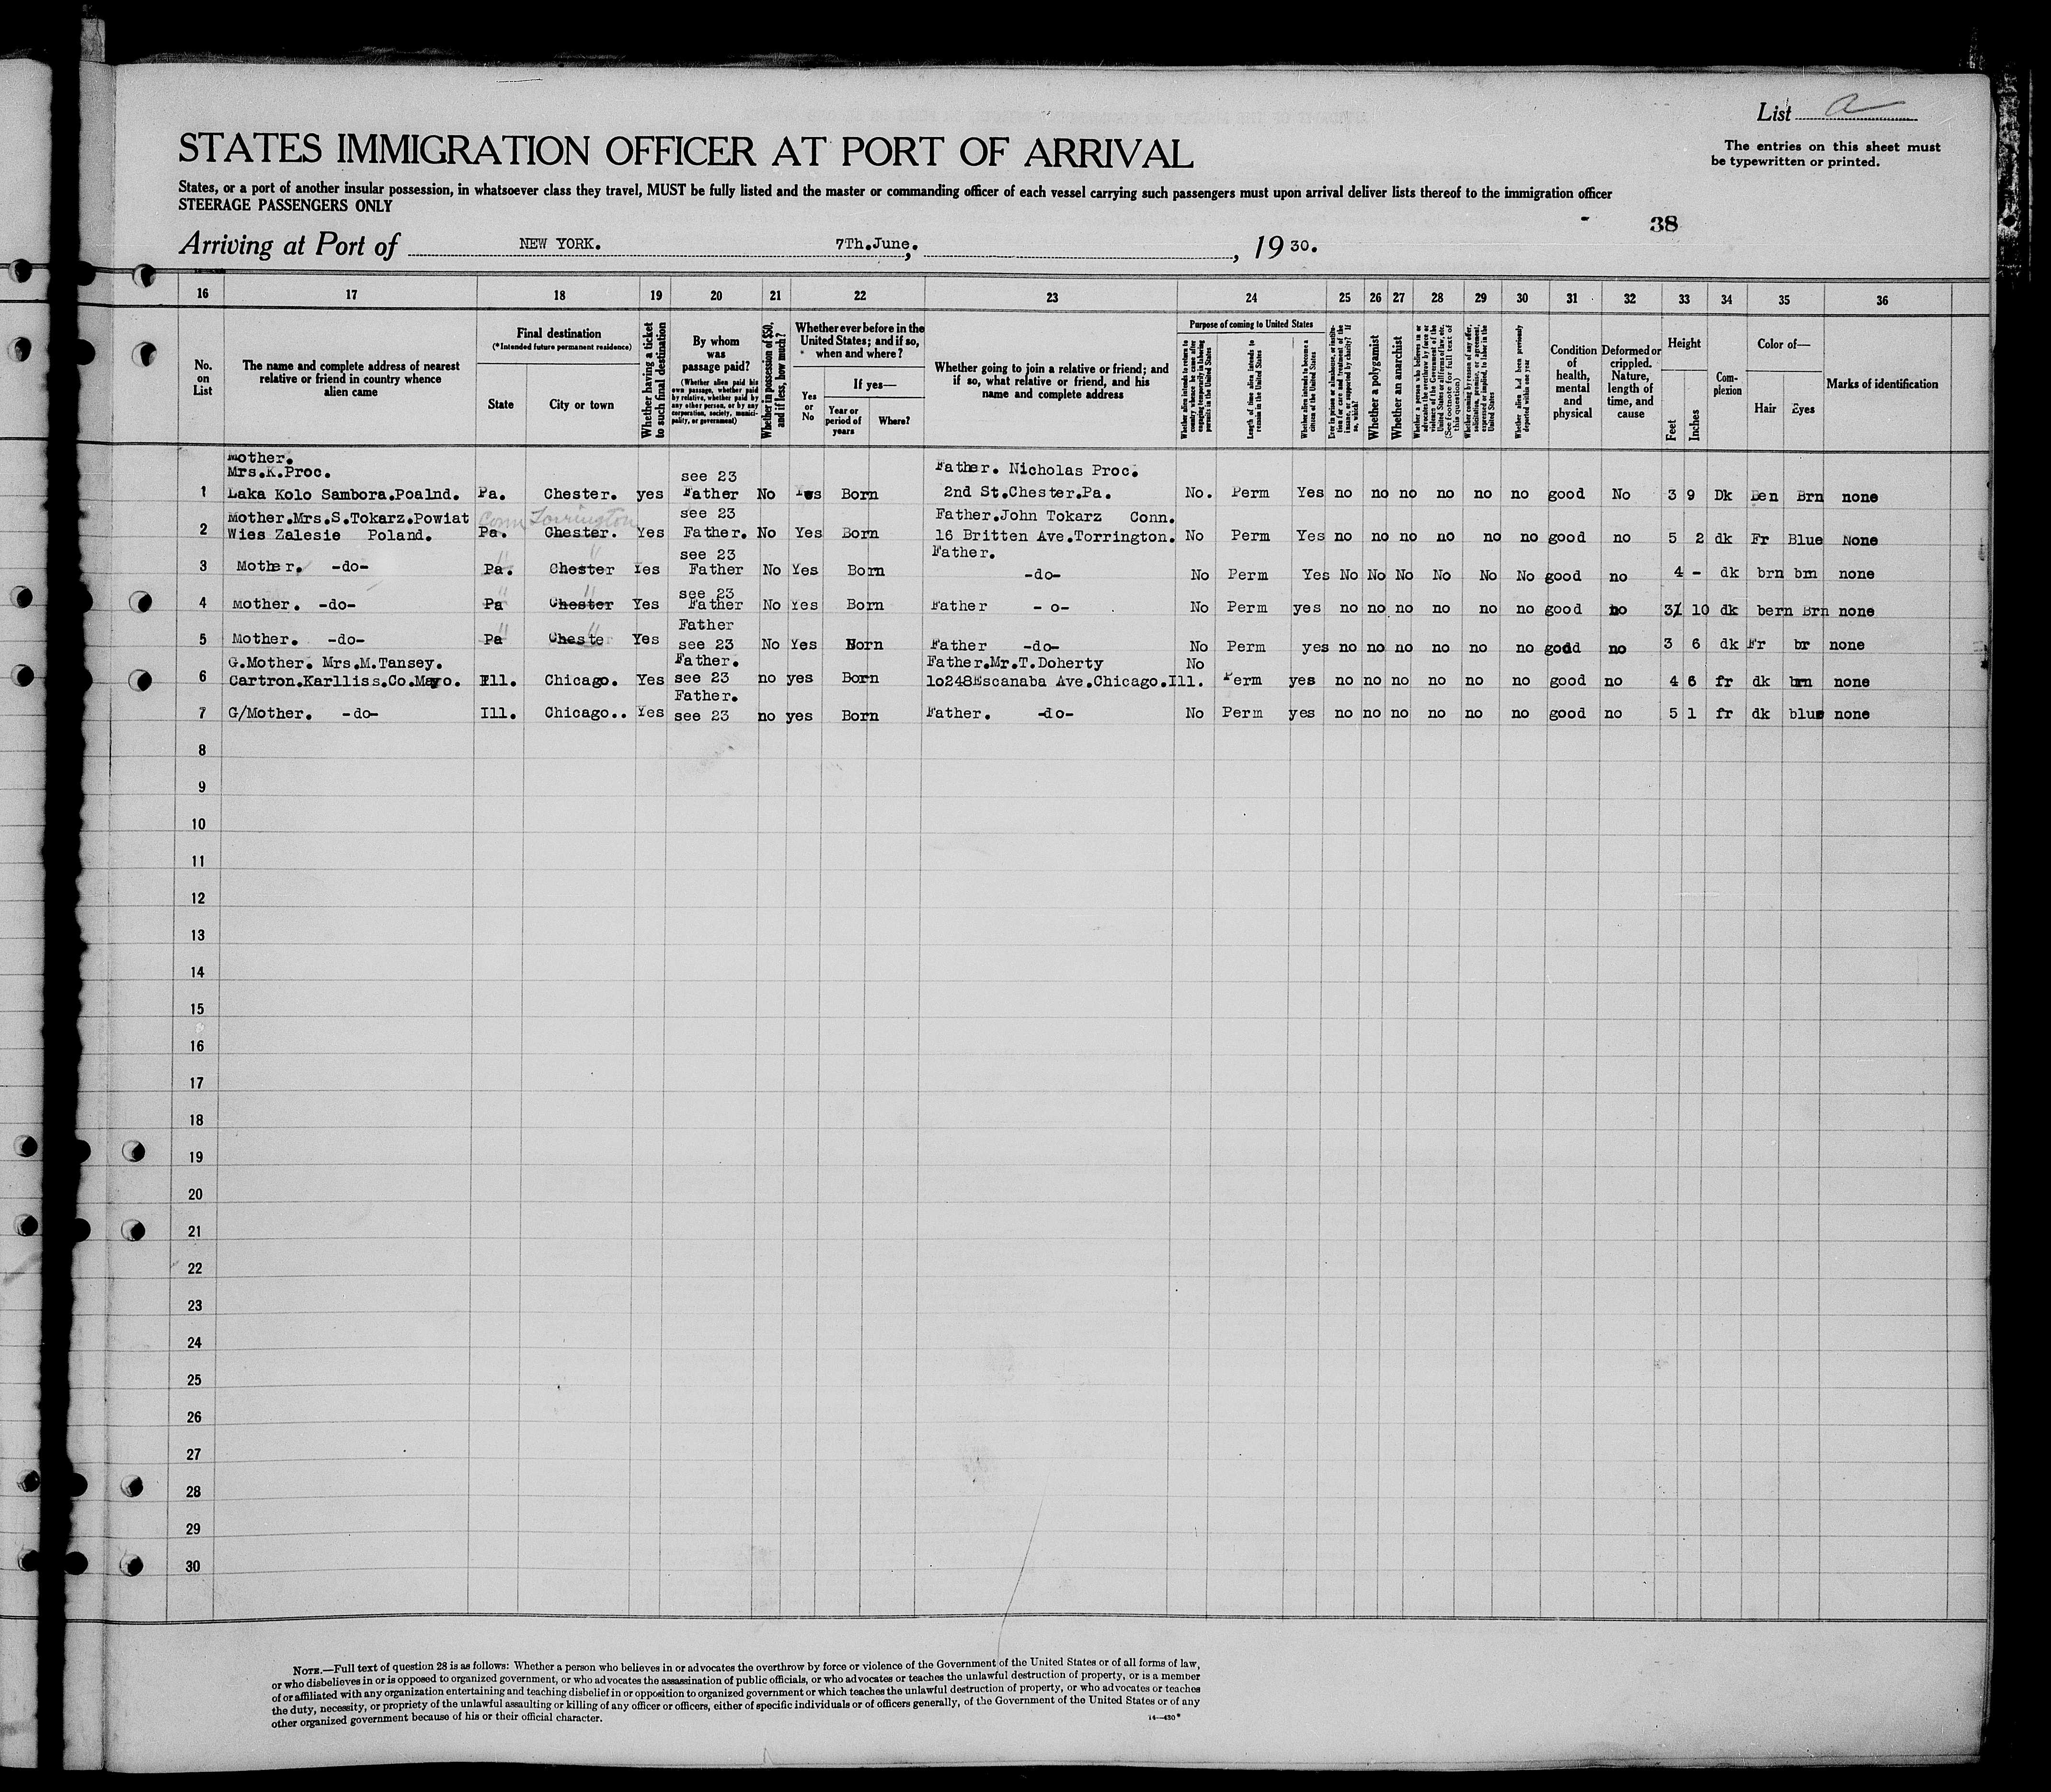 List a
The entries on this sheet must
be typewritten or printed.
STATES IMMIGRATION OFFICER AT PORT OF ARRIVAL
States, or a port of another insular possession, in whatsoever class they travel, MUST be fully listed and the master or commanding officer of each vessel carrying such passengers must upon arrival deliver lists thereof to the immigration officer
STEERAGE PASSENGERS ONLY
38
Arriving at Port of NEW YORK. 7Th.June, , 19 30.
16 17 18 19 20 21 22 23 24 25 26 27 28 29 30 31 32 33 34 35 36
No. on List
The name and complete address of nearest
relative or friend in country whence
alien came
Final destination
(*Intended future permanent residence)
State
City or town
Whether having a ticket
to such final destination
By whom
was
passage paid?
(Whether alien paid his
own passage, whether paid
by relative, whether paid by
any other person, or by any
corporation, society, munici-
pality, or government)
Whether in possession of $50,
and if less, how much?
Whether ever before in the
United States; and if so,
when and where?
Yes
or
No
If yes—
Year or
period of
years
Where?
Whether going to join a relative or friend; and
if so, what relative or friend, and his
name and complete address
Purpose of coming to United States
Whether alien intends to return to
country whence he came after
engaging temporarily in laboring
pursuits in the United States
Length of time alien intends to
remain in the United States
Whether alien intends to become a
citizen of the United States
Ever in prison or almshouse, or institu-
tion for care and treatment of the
insane, or supported by charity? If
so, which?
Whether a polygamist
Whether an anarchist
Whether a person who believes in or
advocates the overthrow by force or
violence of the Government of the
United States or all forms of law, etc.
(See footnote for full text of
this question)
Whether coming by reason of any offer,
solicitation, promise, or agreement,
expressed or implied, to labor in the
United States
Whether alien had been previously
deported within one year
Condition
of
health,
mental
and
physical
Deformed or
crippled.
Nature,
length of
time, and
cause
Height
Feet
Inches
Com-
plexion
Color of—
Hair
Eyes
Marks of identification
Mother.
Mrs.K.Proc. see 23 Father. Nicholas Proc.
1 Laka Kolo Sambora.Poalnd. Pa. Chester. yes Father No Yes Born 2nd St.Chester.Pa. No. Perm Yes no no no no no no good No 3 9 Dk Den Brn none
Mother.Mrs.S.Tokarz.Powiat Conn Torrington see 23 Father.John Tokarz Conn.
2 Wies Zalesie Poland. Pa. Chester. Yes Father. No Yes Born 16 Britten Ave.Torrington. No Perm Yes no no no no no no good no 5 2 dk Fr Blue None
" " see 23 Father.
3 Mother. -do- Pa. Chester Yes Father No Yes Born -do- No Perm Yes No No No No No No good no 4 - dk brn brn none
" " see 23
4 Mother. -do- Pa Chester Yes Father No Yes Born Father - o- No Perm yes no no no no no no good no 3 10 dk bern Brn none
" " Father
5 Mother. -do- Pa Cheste Yes see 23 No Yes Born Father -do- No Perm yes no no no no no no good no 3 6 dk Fr br none
G.Mother. Mrs.M.Tansey. Father. Father.Mr.T.Doherty No
6 Cartron.Karlliss.Co.Mayo. Ill. Chicago. Yes see 23 no yes Born 1o248Escanaba Ave.Chicago.Ill. Perm yes no no no no no no good no 4 6 fr dk brn none
Father.
7 G/Mother. -do- Ill. Chicago.. Yes see 23 no yes Born Father. -do- No Perm yes no no no no no no good no 5 1 fr dk blue none
8
9
10
11
12
13
14
15
16
17
18
19
20
21
22
23
24
25
26
27
28
29
30
NOTE.—Full text of question 28 is as follows: Whether a person who believes in or advocates the overthrow by force or violence of the Government of the United States or of all forms of law,
or who disbelieves in or is opposed to organized government, or who advocates the assassination of public officials, or who advocates or teaches the unlawful destruction of property, or is a member
of or affiliated with any organization entertaining and teaching disbelief in or opposition to organized government or which teaches the unlawful destruction of property, or who advocates or teaches
the duty, necessity, or propriety of the unlawful assaulting or killing of any officer or officers, either of specific individuals or of officers generally, of the Government of the United States or of any
other organized government because of his or their official character.
14—430*